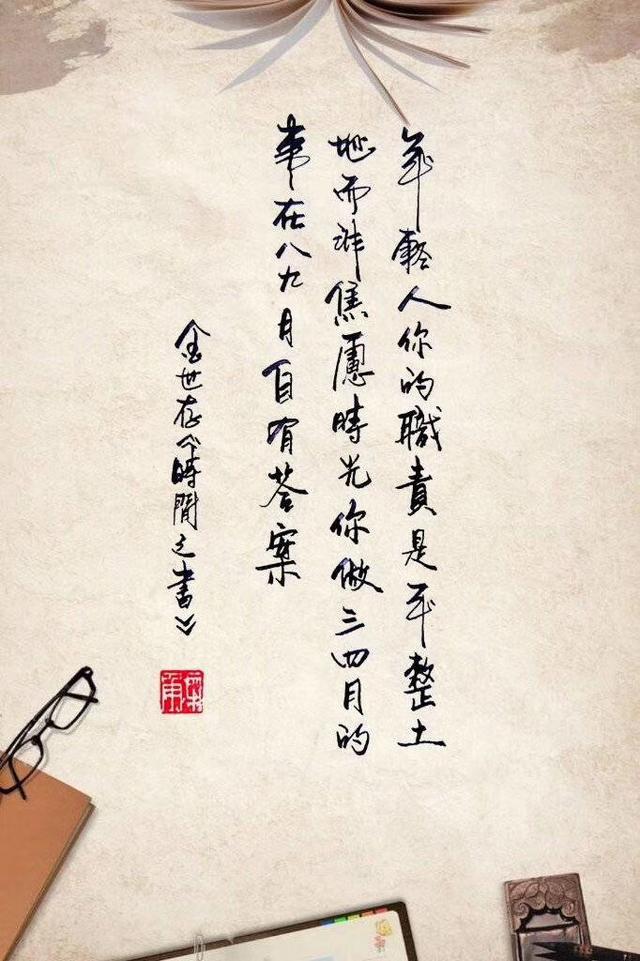 年輕人你的職責是平整土
地而非焦慮時光你做三四月的
事在八九月自有答案
余世存《時間之書》